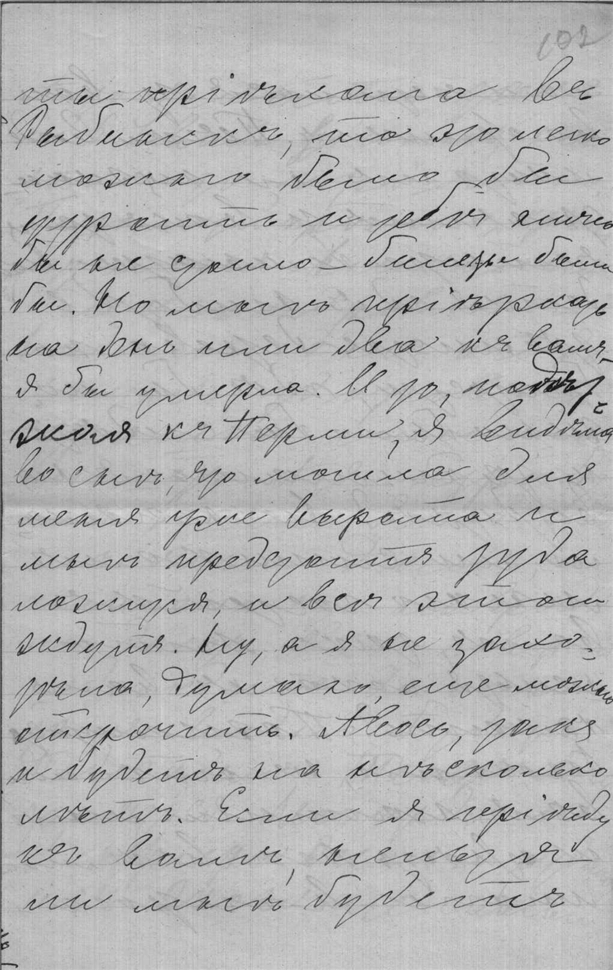 102
ты пріѣхала въ
Рыбинскъ, то это легко
можно было бы
устроить и тебѣ ничего
бы не стоило – билеты были
бы. Но мнѣ пріѣзжать
на день или два къ вамъ,
я бы умерла. И то, подъѣз
жая къ Перми, я видѣла
во снѣ, что могила для
меня уже вырыта и
мнѣ предстоитъ туда
ложится, и всѣ этого
ждутъ. Ну, а я не захо-
тѣла, думаю, еще можно
отсрочить. Авось, такъ
и будетъ на нѣсколько
лѣтъ. Если я пріѣду
къ вамъ, нельзя
ли мнѣ будетъ